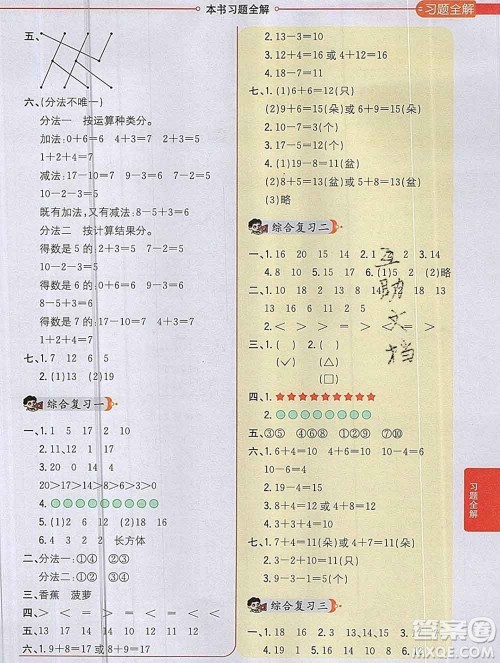 本书习题全解
习题全解
五、
六、(分法不唯一)
分法一 按运算种类分。
加法:0+6=6 4+3=7 3+3+1=7
1+2+4=7
减法:17-10=7 9-6=3 7-2=5
10-2-3=5
既有加法,又有减法:8-5+4=7
分法二 按计算结果分。
得数是5的:7-2=5 10-2-3=5
得数是6的:0+6=6
得数是7的:4+3=7 17-10=7
3+3+1=7 1+2+4=7
8-5+4=7
得数是3的:9-6=3
七、1.7 12 6 5
2.(1)13 (2)19
综合复习一
一、1.1 5 17 2 10
2.11、12、17
3.20 0 14 4
20>17>14>8>6>3>0
4.
5.0 2 4 2 长方体
二、分法一:①④ ②③
分法二:①② ③④
三、香蕉 菠萝
四、> < = < = < > =
六、1.9+8=17或8+9=17
2.13-3=10
3.12+4=16或4+12=16
4.10-8=2
七、1.(1)6+6=12(只)
(2)8+6=14或6+8=14(只)
2.10-7=3(个)
3.18-5=13(个)
4.(1)19-8=11(盆)
(2)8+5=13(盆)或5+8=13(盆)
(3)略
综合复习二
一、1.16 20 15 14 2.1 2 3.14
4.8 10 5.15 17 6.(1)5 2 (2)略
二、1.10 18 2 13 8 14 12 18 13
13
2.< = > < > = = >
三、1.? 2.(△)
(✓) (△)
(□)
四、1.★★★★★★★★★★
2.
五、③⑤ ④⑧ ①⑥ ②⑨ ⑦⑩
六、1.6+4=10或4+6=10 10-4=6
10-6=4
2.9+1=10
3.19-4=15
七、1.7+4=11(朵)或4+7=11(朵)
2.3-2+10=11(只)
3.9+2=11(只)或2+9=11(只)
4.10-5+3=8(只)
综合复习三
互
助
文
档
习题全解
答案圈
MXQE.COM